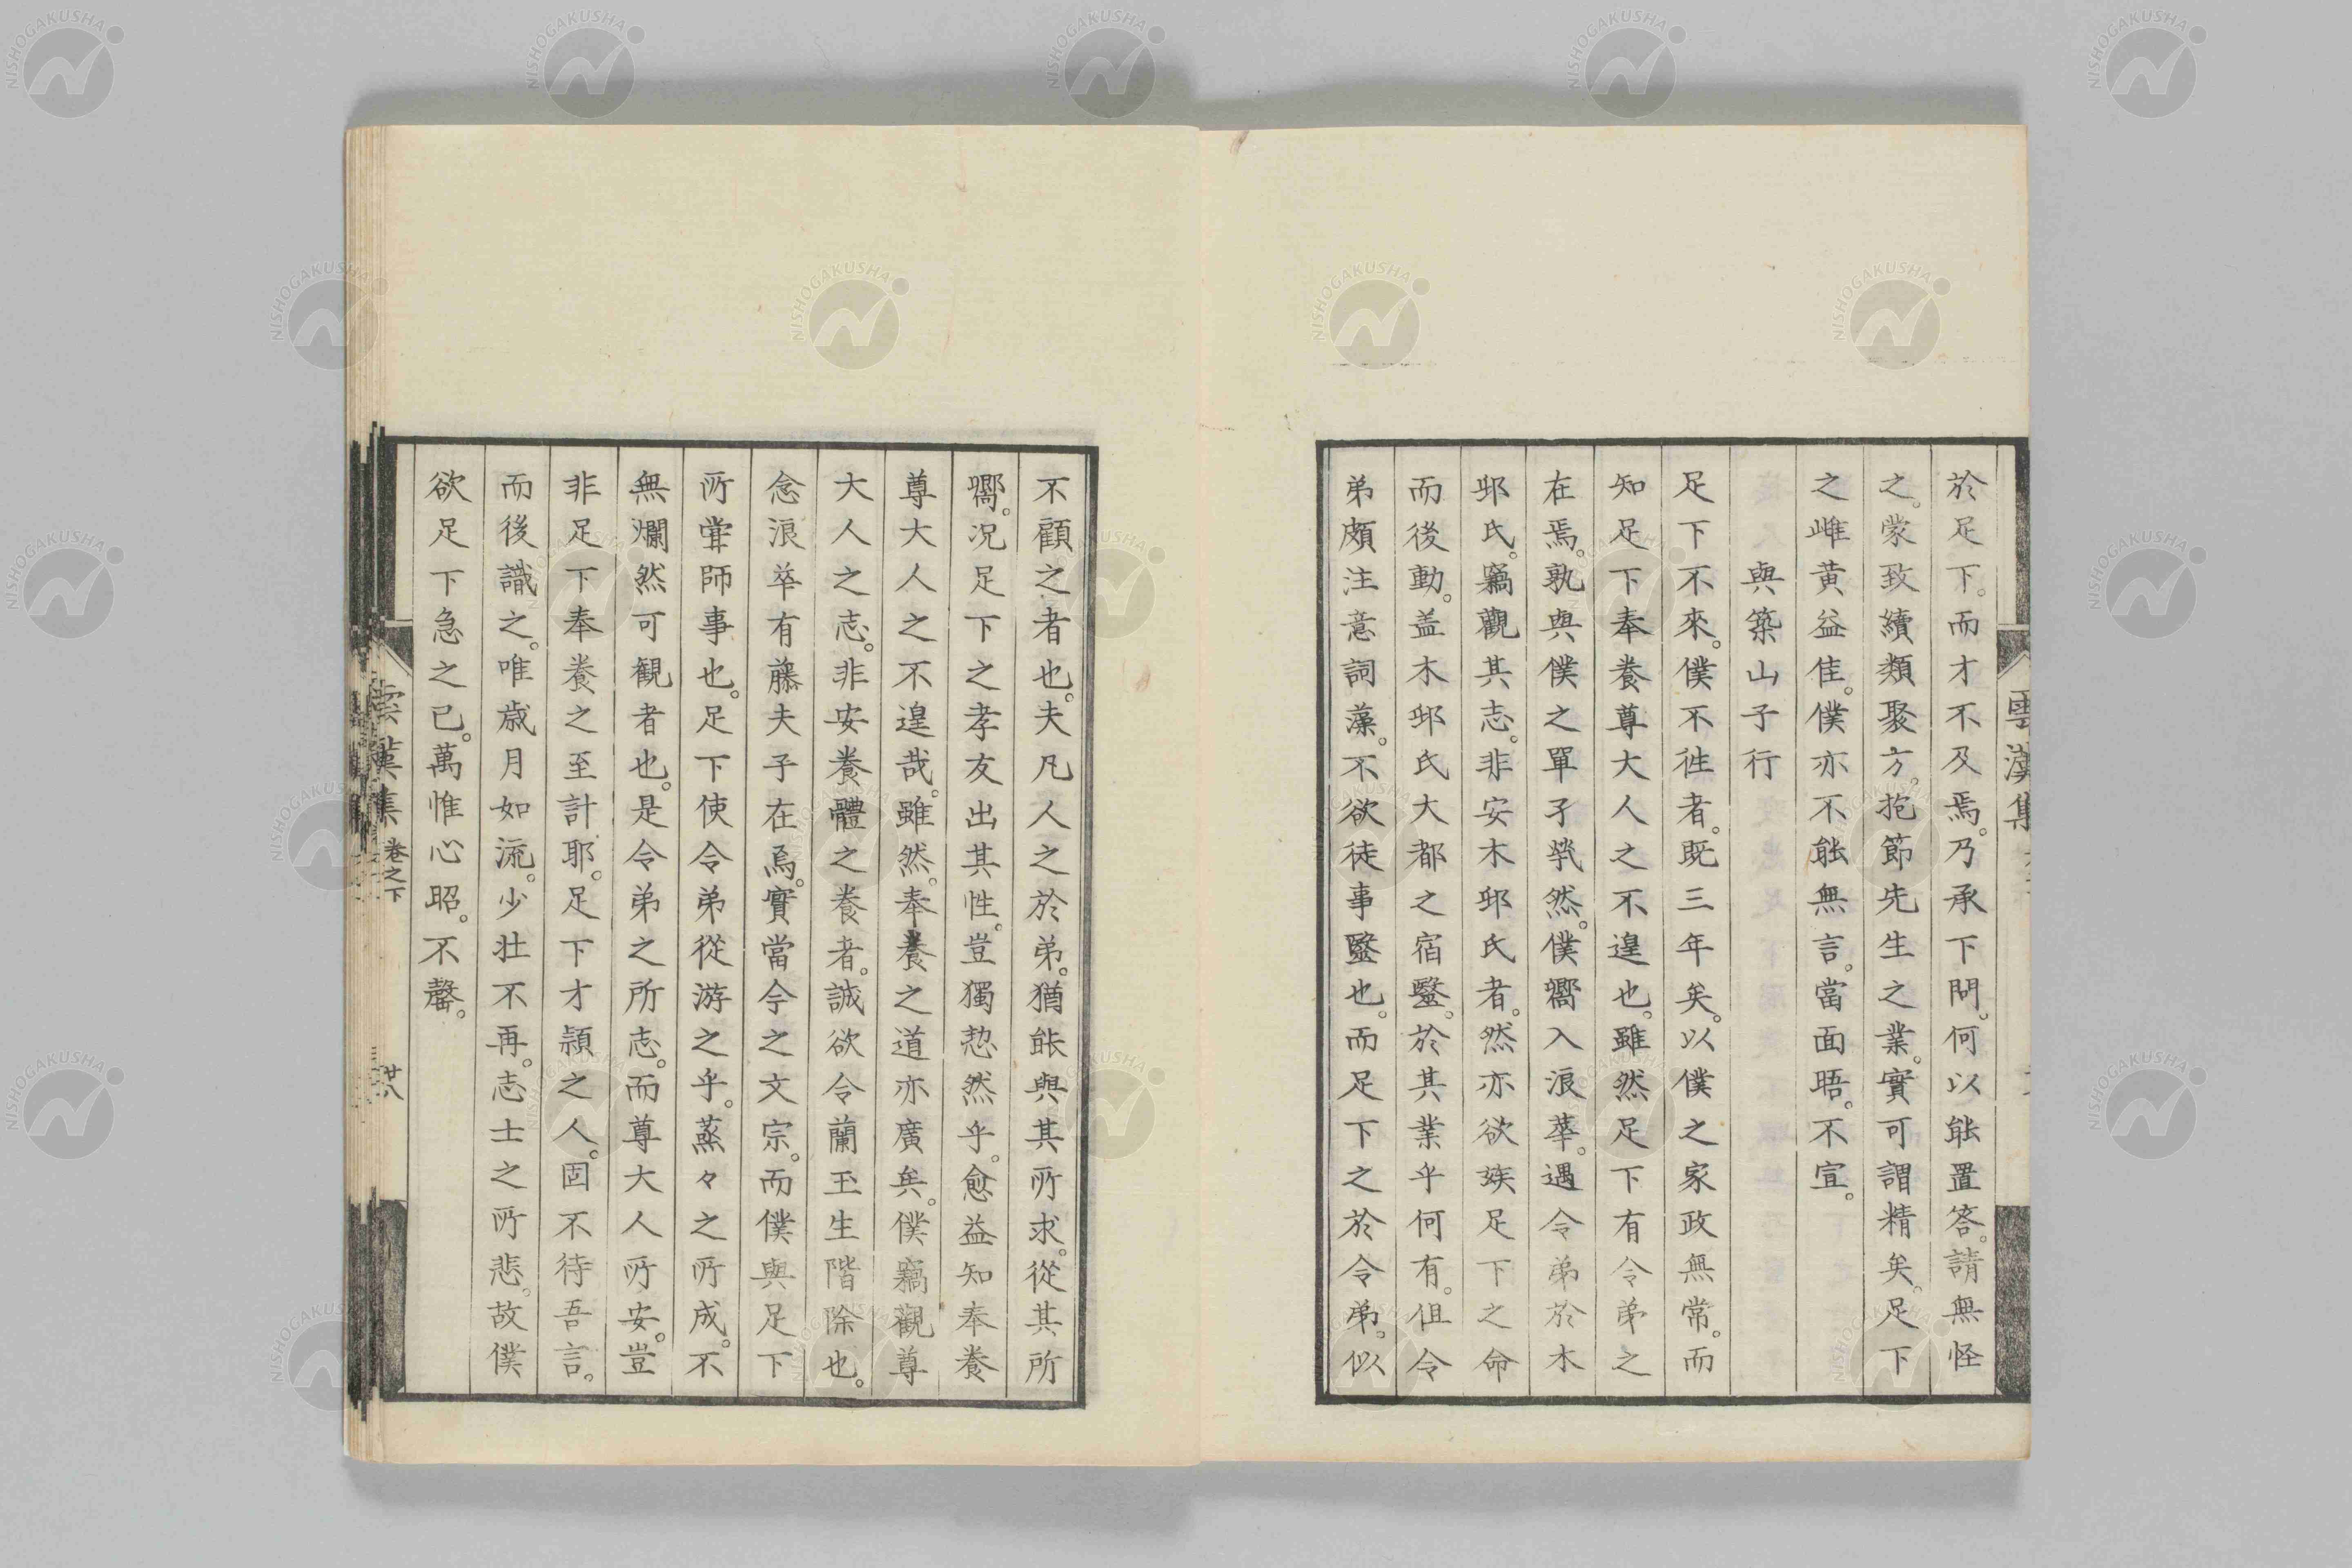 於足下。而才不及焉。乃承下問。何以能置答。請無怪
之。蒙致續類聚方。抱節先生之業。實可謂精矣。足下
之雌黄益佳。僕亦不能無言。當面晤。不宣。
與築山子行
足下不來。僕不徃者。既三年矣。以僕之家政無常。而
知足下奉養尊大人之不遑也。雖然足下有令弟之
在焉。孰與僕之單孑煢然。僕嚮入浪華。遇令弟於木
邨氏。竊觀其志。非安木邨氏者。然亦欲竢足下之命
而後動。盖木邨氏大都之宿毉。於其業乎何有。但令
弟頗注意詞藻。不欲徒事毉也。而足下之於令弟。似
雲漢集
不顧之者也。夫凡人之於弟。猶能與其所求。從其所
嚮。况足下之孝友出其性。豈獨恝然乎。愈益知奉養
尊大人之不遑哉。雖然。奉養之道亦廣矣。僕竊觀尊
大人之志。非安養體之養者。誠欲令蘭玉生階除也。
念浪華有藤夫子在焉。實當今之文宗。而僕與足下
所嘗師事也。足下使令弟從游之乎。蒸々之所成。不
無爛然可観者也。是令弟之所志。而尊大人所安。豈
非足下奉養之至計耶。足下才頴之人。固不待吾言。
而後識之。唯歳月如流。少壮不再。志士之所悲。故僕
欲足下急之已。萬惟心昭。不罄。
雲漢集 卷之下 廿八
NISHOGAKUSHA